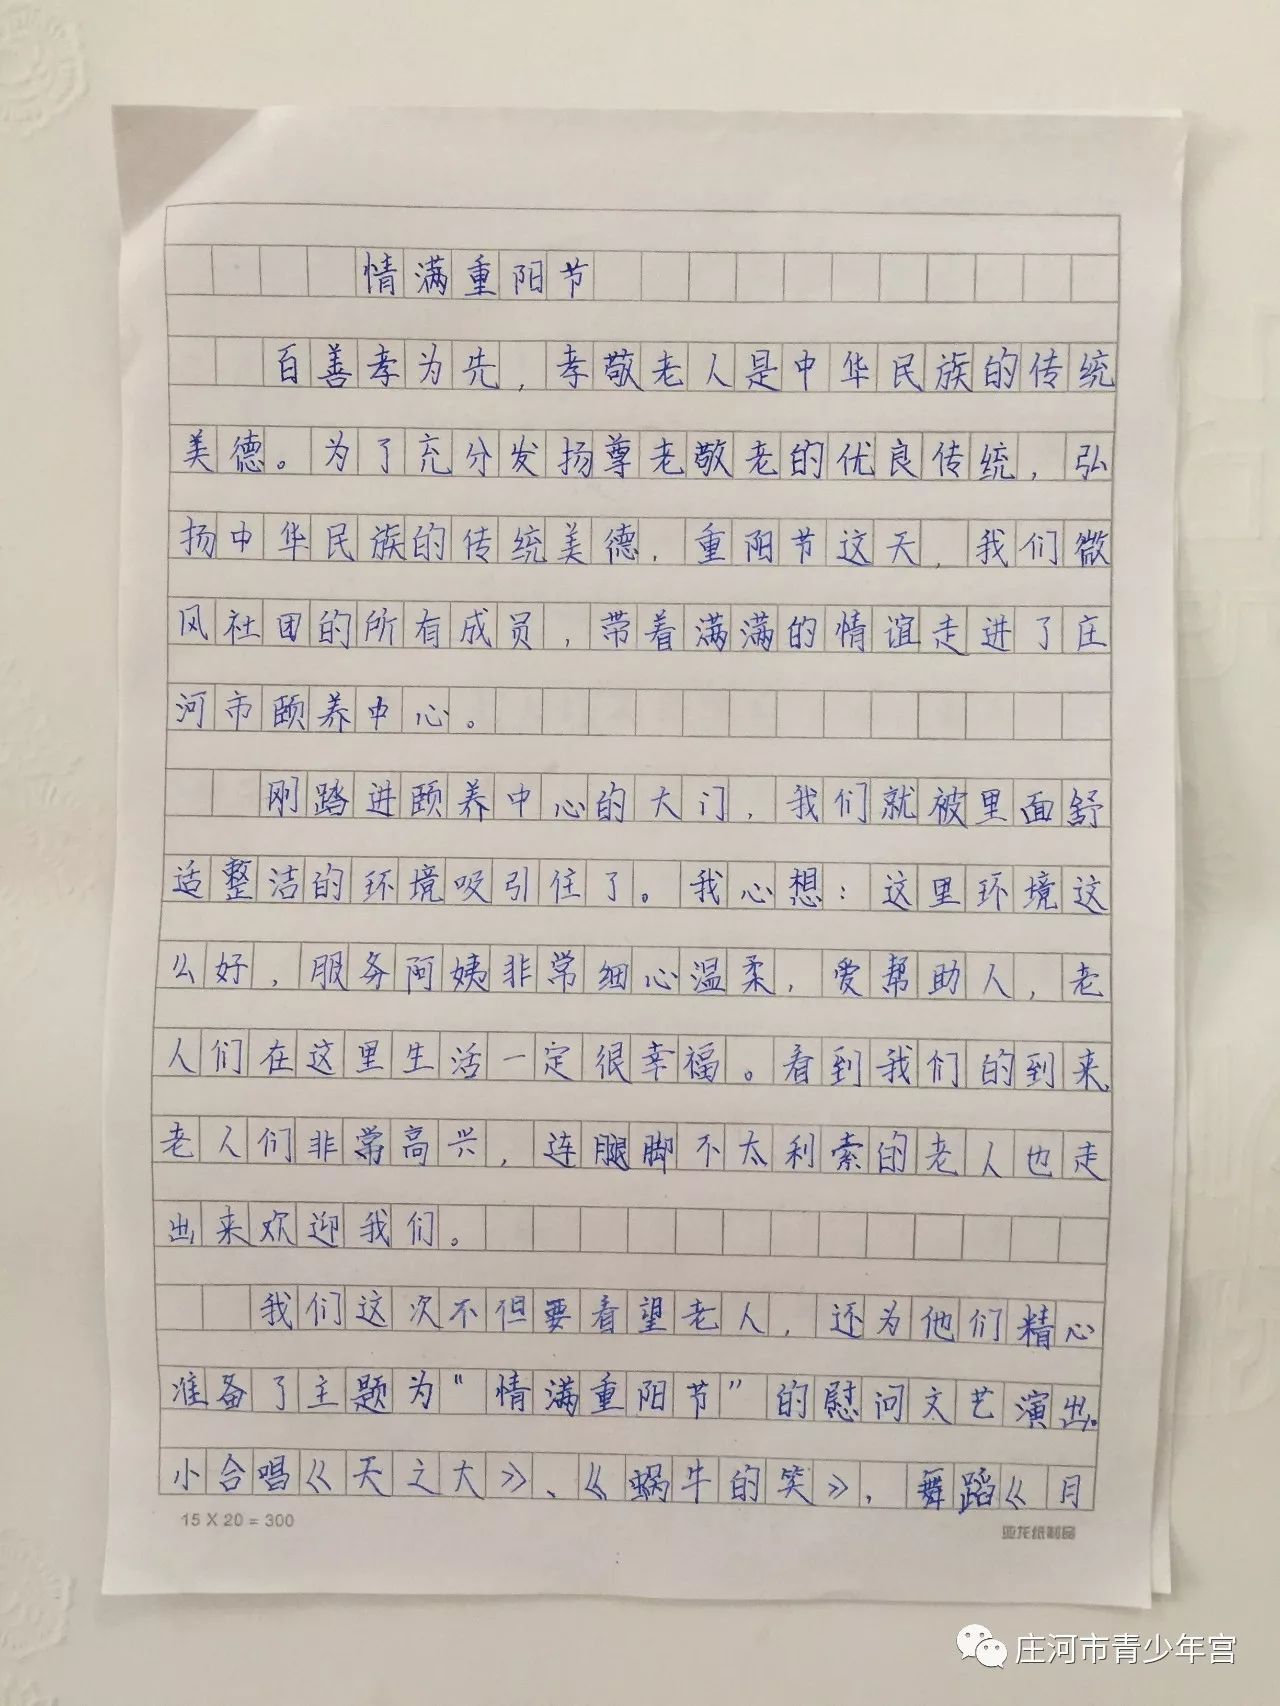 情满重阳节
百善孝为先，孝敬老人是中华民族的传统
美德。为了充分发扬尊老敬老的优良传统，弘
扬中华民族的传统美德，重阳节这天，我们微
风社团的所有成员，带着满满的情谊走进了庄
河市颐养中心。
刚踏进颐养中心的大门，我们就被里面舒
适整洁的环境吸引住了。我心想：这里环境这
么好，服务阿姨非常细心温柔，爱帮助人，老
人们在这里生活一定很幸福。看到我们的到来，
老人们非常高兴，连腿脚不太利索的老人也走
出来欢迎我们。
我们这次不但要看望老人，还为他们精心
准备了主题为“情满重阳节”的慰问文艺演出。
小合唱《天之大》、《蜗牛的笑》，舞蹈《月
15 X 20 = 300
亚龙纸制品
庄河市青少年宫